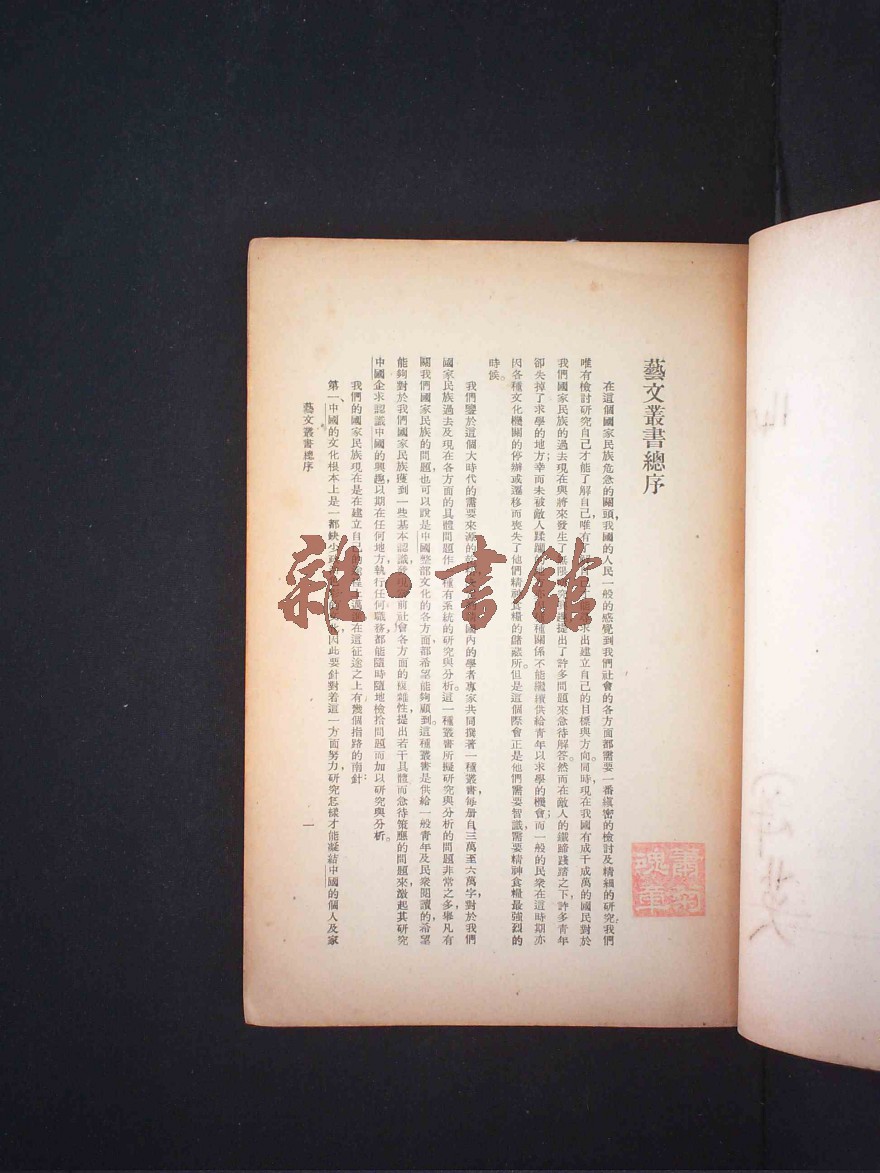 藝文叢書總序
在這個國家民族危急的關頭,我國的人民一般的感覺到我們社會的各方面都需要一番縝密的檢討及精細的研究。我們
唯有檢討研究自己才能了解自己,唯有了解自己才能尋求出建立自己的目標與方向。同時,現在我國有成千成萬的國民對於
我們國家民族的過去現在與將來發生了無限研究興趣,提出了許多問題來急待解答。然而在敵人的鐵蹄踐踏之下,許多青年
卻失掉了求學的地方;幸而未被敵人蹂躪的種關係不能繼續供給青年以求學的機會;而一般的民衆在這時期亦
因各種文化機關的停辦或遷移而喪失了他們精神食糧的儲藏所。但是這個際會正是他們需要智識,需要精神食糧最強烈的
時候。
我們鑒於這個大時代的需要來源的國內的學者專家共同撰著一種叢書,每册自三萬至六萬字,對於我們
國家民族過去及現在各方面的具體問題作一種有系統的研究與分析。這一種叢書所擬研究與分析的問題非常之多,舉凡有
關我們國家民族的問題,也可以說是中國整部文化的各方面,都希望能夠顧到。這種叢書是供給一般青年及民衆閱讀的,希望
能夠對於我們國家民族獲到一些基本認識,發現當前社會各方面的複雜性,提出若干具體而急待策應的問題來,激起其研究
中國企求認識中國的興趣,以期在任何地方,執行任何職務,都能隨時隨地檢拾問題而加以研究與分析。
我們的國家民族現在是在建立自己的在這征途之上有幾個指路的南針:
第一、中國的文化根本上是一部缺少因此要針對着這一方面努力,研究怎樣才能凝結中國的個人及家
藝文叢書總序
一
雜·書館